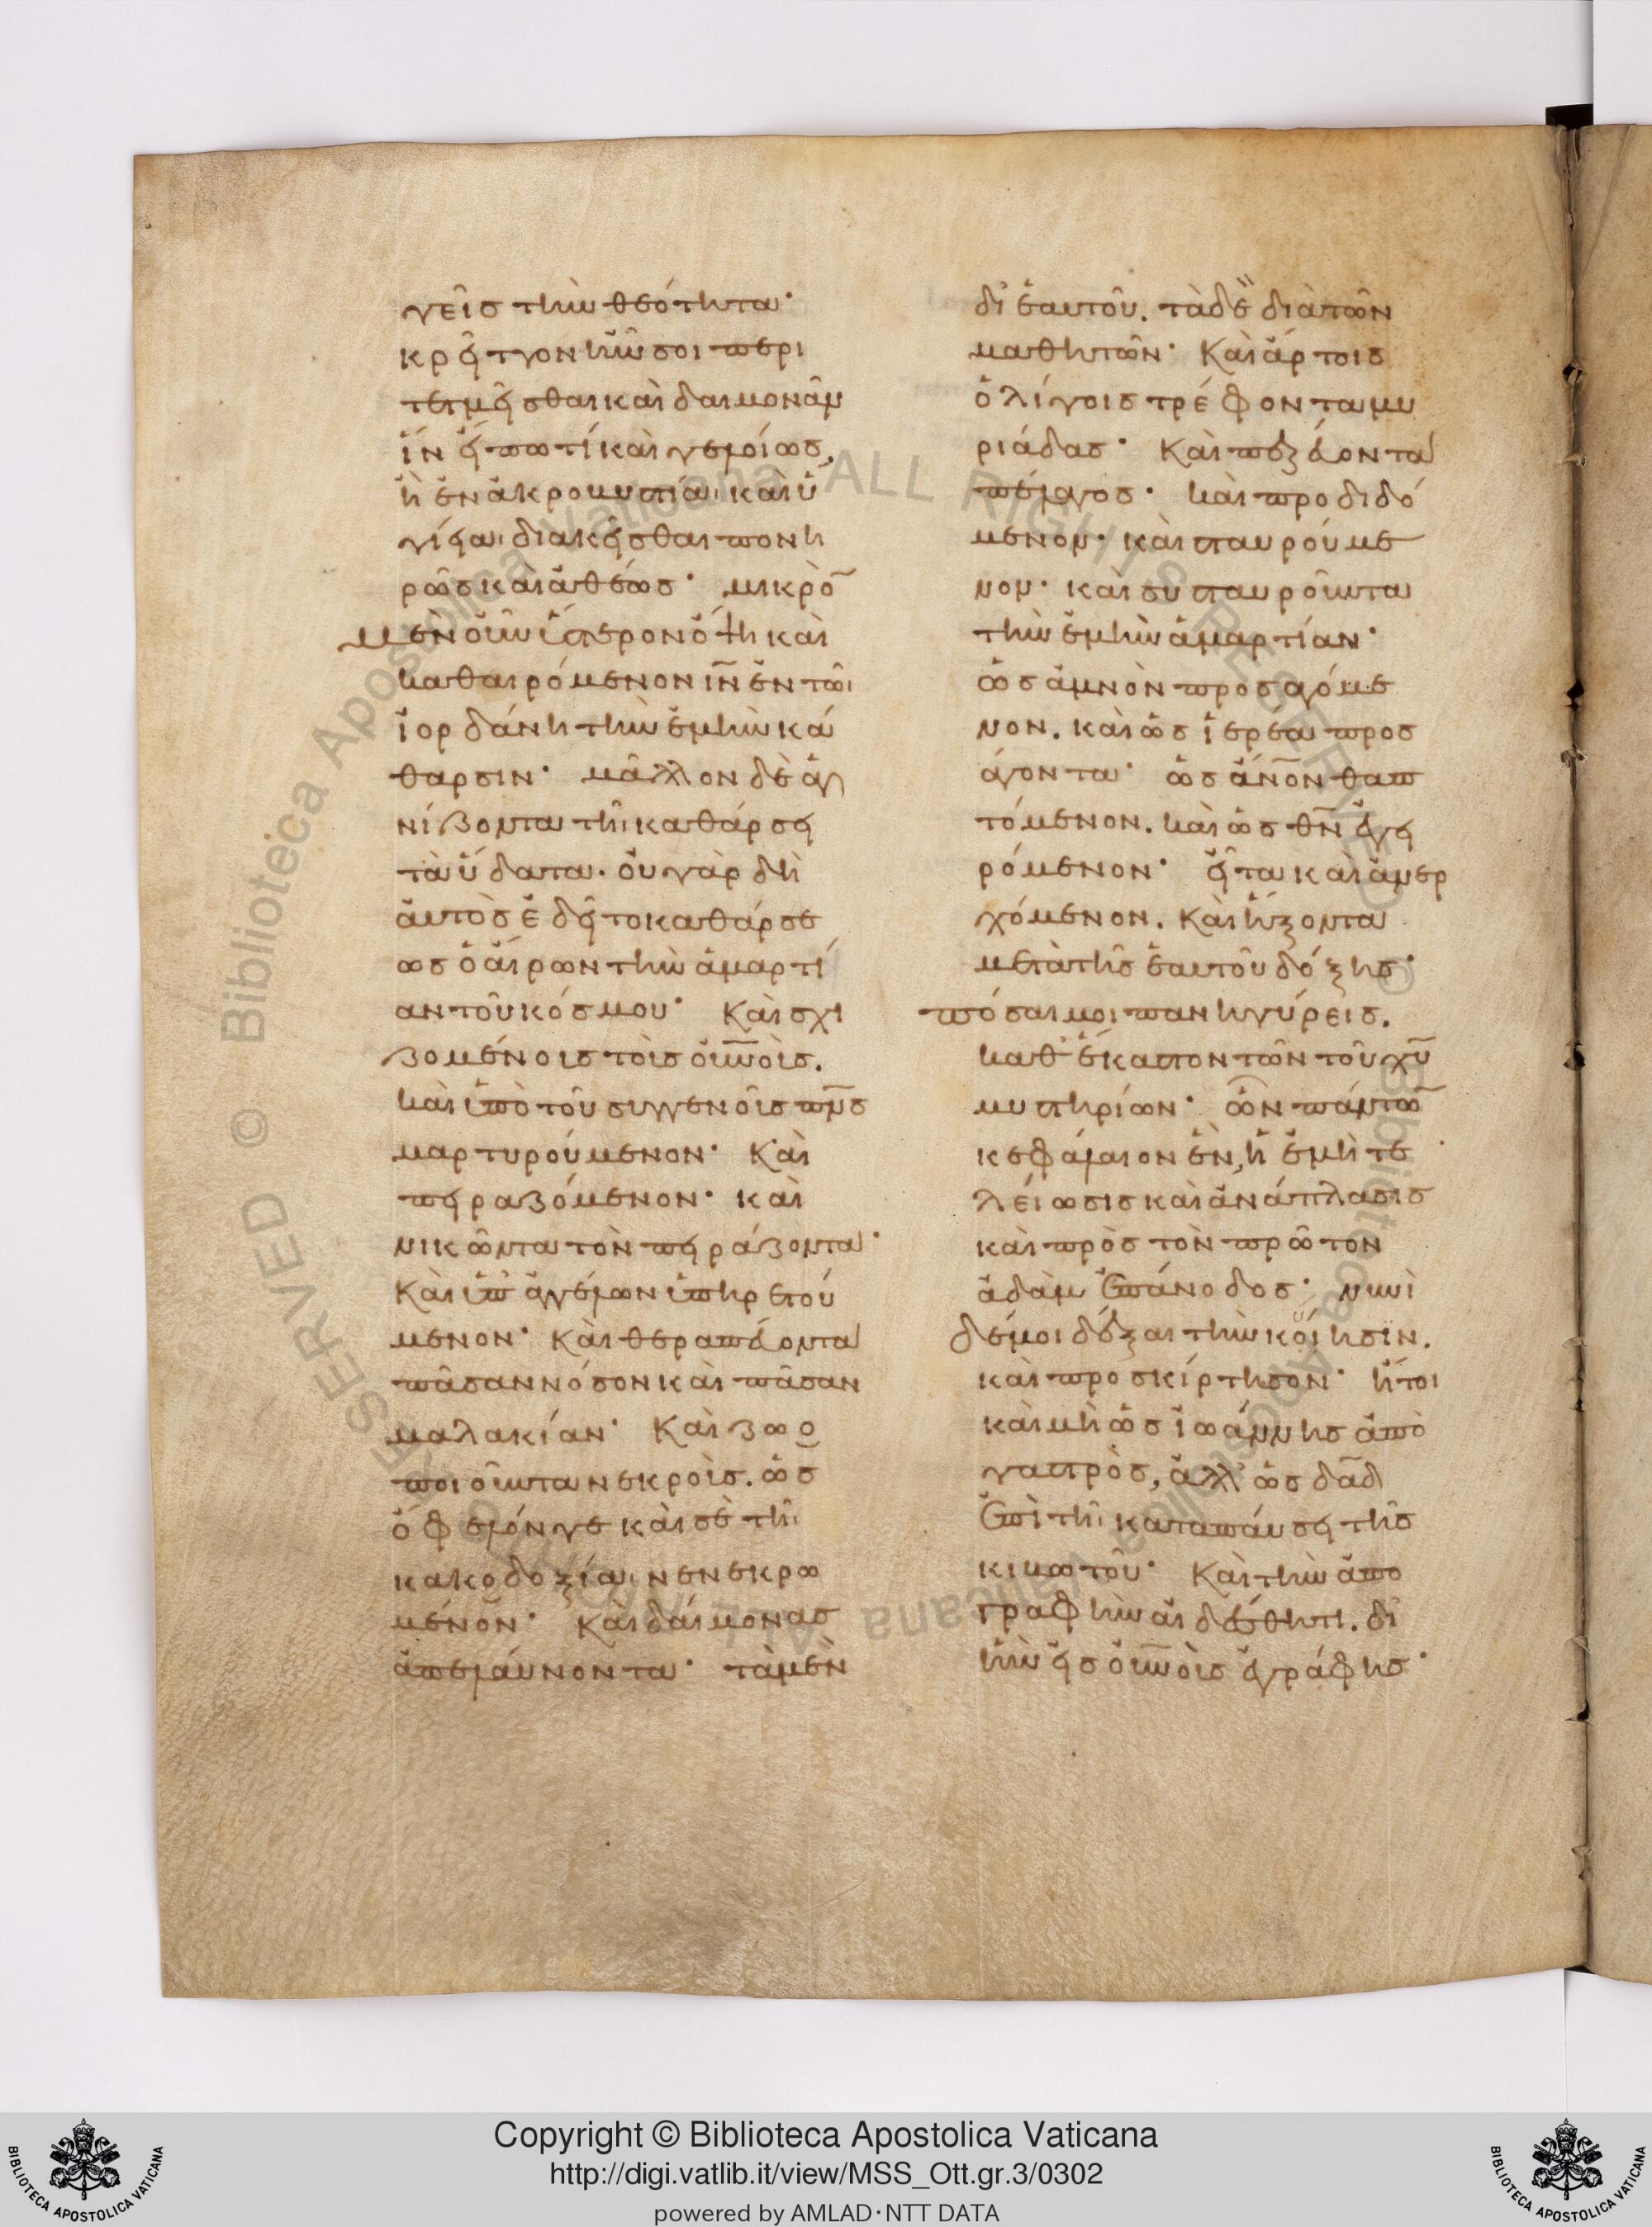 γεῖσ τὴν θεότητα·
κρεῖττον ἦν σοι περι
τετμεῖσθαι καὶ δαιμονᾶν
ἵν' εἴπω τί καὶ γελοίωσ,
ἢ ἐν ἀκροβυστίαι καὶ ὑ
γιείαι διακεῖσθαι πονη
ρῶσ καὶ ἀθέωσ· μικρὸ̅
μὲν οὖν ὕστερον ὄψη καὶ
καθαιρόμενον ιν̅ ἐν τῶι
ἰορδάνη τὴν ἐμὴν κά
θαρσιν· μᾶλλον δὲ ἁγ
νίζοντα τῆι καθάρσει
τὰ ὕδατα. οὐ γὰρ δὴ
αὐτὸσ ἐδεῖτο καθάρσε
ωσ ὁ αἴρων τὴν ἁμαρτί
αν τοῦ κόσμου· Καὶ σχι
ζομένοισ τοῖσ οὐν̅οῖσ.
καὶ ὑπὸ τοῦ συγγενοῦσ πν̅σ
μαρτυρούμενον· Καὶ
πειραζόμενον· καὶ
νικῶντα τὸν πειράζοντα·
Καὶ ὑπ' ἀγγέλων ὑπηρετού
μενον· Καὶ θεραπεύοντα
πᾶσαν νόσον καὶ πᾶσαν
μαλακίαν· Καὶ ζωο
ποιοῦντα νεκροῖσ. ὡσ
ὄφελόν γε καὶ σὲ τῆι
κακοδοξίαι νενεκρω
μένον· Καὶ δαίμονασ
ἀπελαύνοντα· τὰ μὲν
δι' ἑαυτοῦ. τὰ δὲ διὰ τῶν
μαθητῶν· Καὶ ἄρτοισ
ὀλίγοισ τρέφοντα μυ
ριάδασ· Καὶ πεζεύοντα
πέλαγοσ· καὶ προδιδό
μενον· καὶ σταυρούμε
νον· καὶ συσταυροῦντα
τὴν ἐμὴν ἁμαρτίαν·
ὡσ ἀμνὸν προσαγόμε
νον. καὶ ὡσ ἱερέα προσ
άγοντα· ὡσ ἄν̅ον θαπ
τόμενον. καὶ ὡσ θν̅ ἐγει
ρόμενον· εἶτα καὶ ἀνερ
χόμενον. Καὶ ἥξοντα
μετὰ τῆσ ἑαυτοῦ δόξησ·
πόσαι μοι πανηγύρεισ.
καθ' ἕκαστον τῶν τοῦ χυ̅
μυστηρίων· ὧν πάντω̅
κεφάλαιον ἕν, ἡ ἐμὴ τε
λείωσισ καὶ ἀνάπλασισ
καὶ πρὸσ τὸν πρῶτον
ἀδὰμ ἐπάνοδοσ· νυνὶ
δέ μοι δέξαι τὴν κύησιν.
καὶ προσκίρτησον· ἤτοι
καὶ μὴ ὡσ ἰωάννησ ἀπὸ
γαστρὸσ, ἀλλ' ὡσ δα̅δ
ἐπὶ τῆι καταπαύσει τῆσ
κιβωτοῦ· Καὶ τὴν ἀπο
γραφὴν αἰδέσθητι. δι'
ἣν εἰσ οὐν̅οὺσ ἐγράφησ·
Copyright © Biblioteca Apostolica Vaticana
http://digi.vatlib.it/view/MSS_Ott.gr.3/0302
powered by AMLAD·NTT DATA